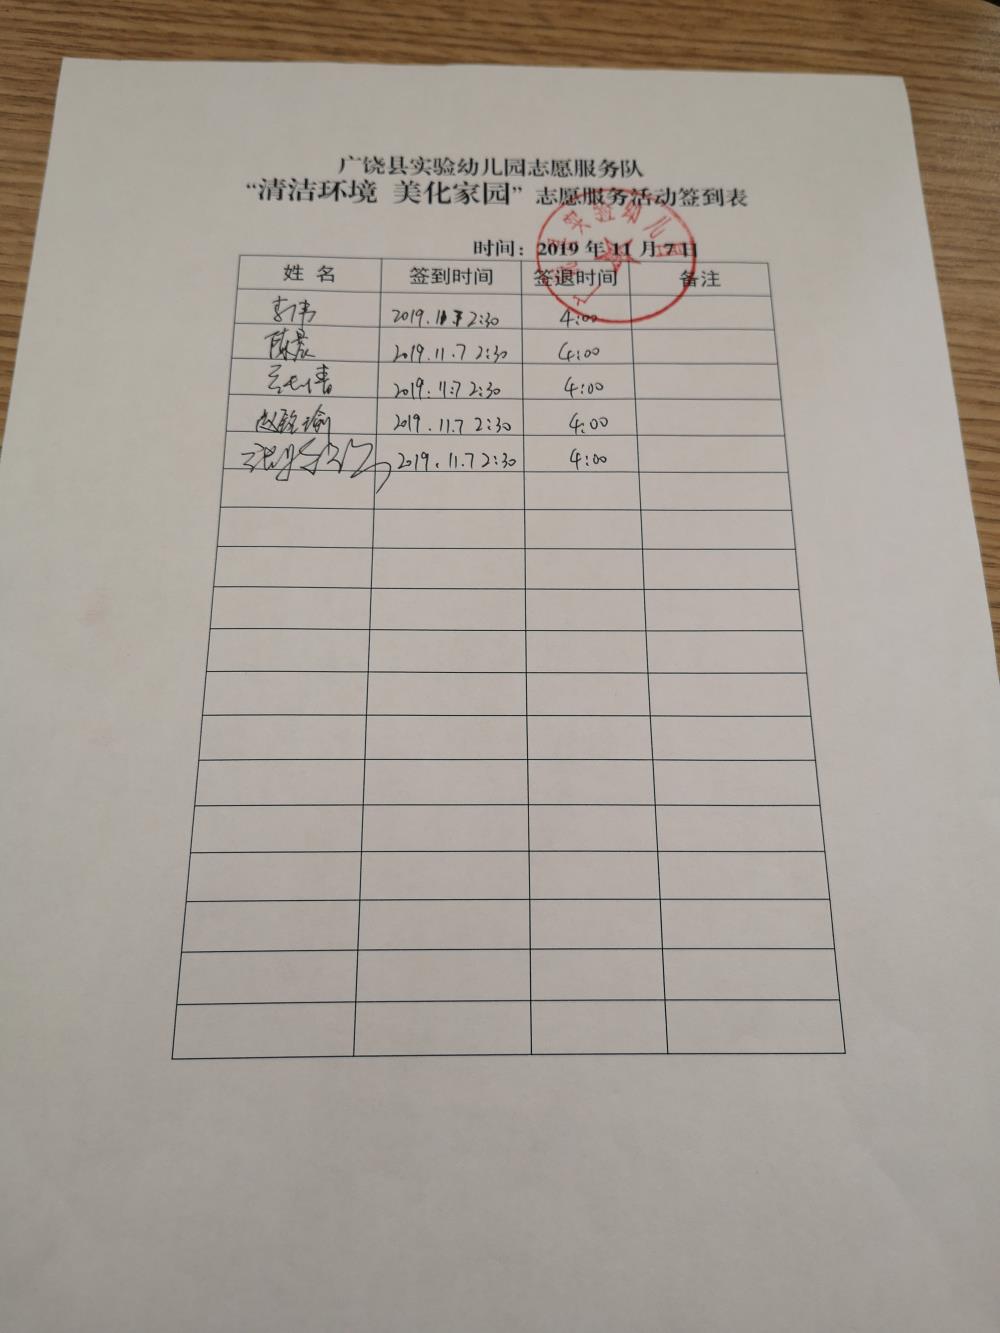 广饶县实验幼儿园志愿服务队
“清洁环境 美化家园”志愿服务活动签到表
时间：2019年11月7日
姓名 签到时间 签退时间 备注
李伟 2019.11.7 2:30 4:00
陈晨 2019.11.7 2:30 4:00
2019.11.7 2:30 4:00
2019.11.7 2:30 4:00
2019.11.7 2:30 4:00
实验幼儿